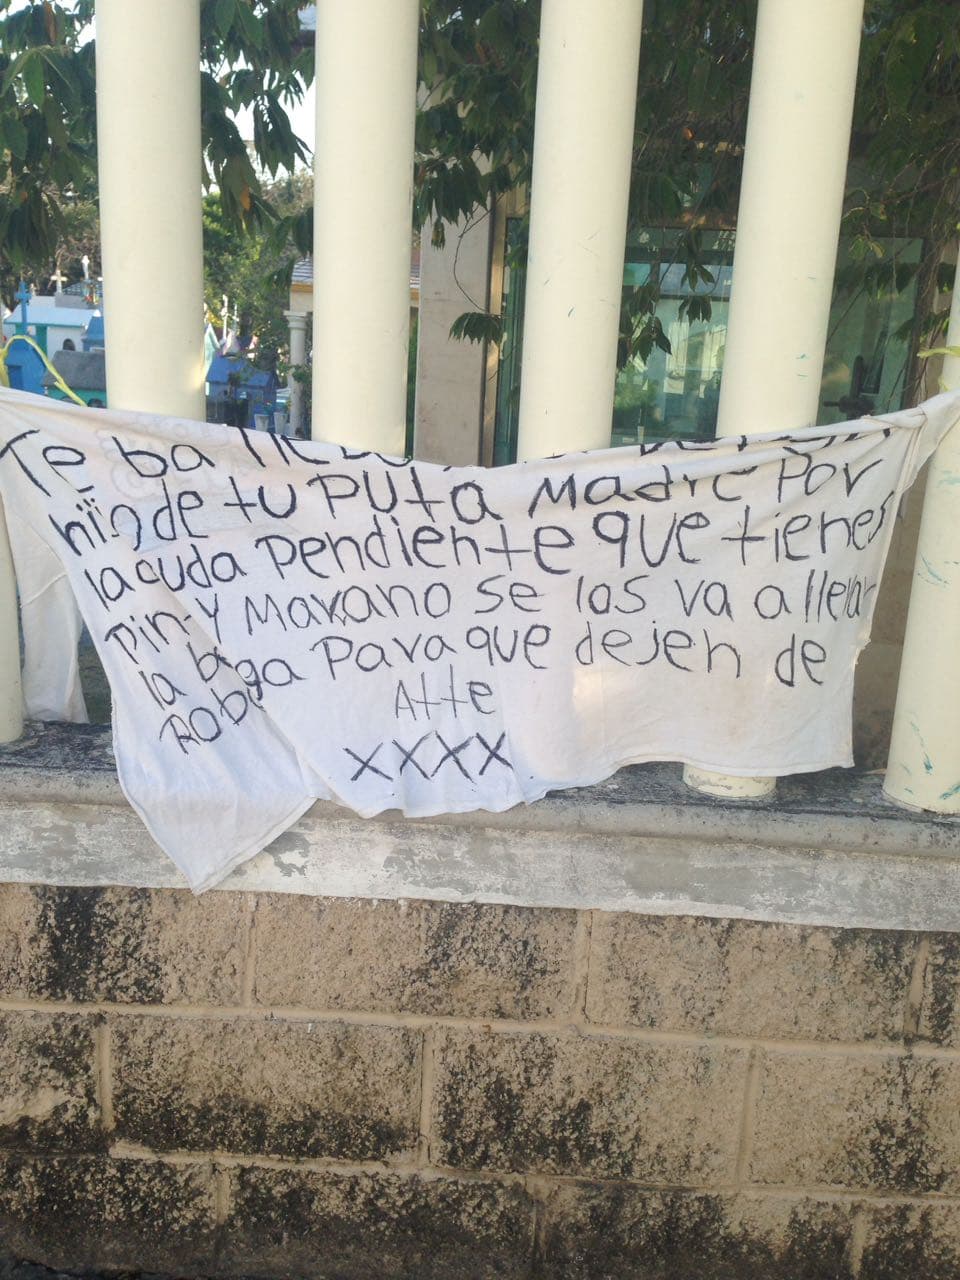 Te ba
hijode tu PUtA MadrE Por
laduda Pendiente que tienes
Pin-y Marrano se los va a llevar
la berga Para que dejen de
Robar Atte
XXXX